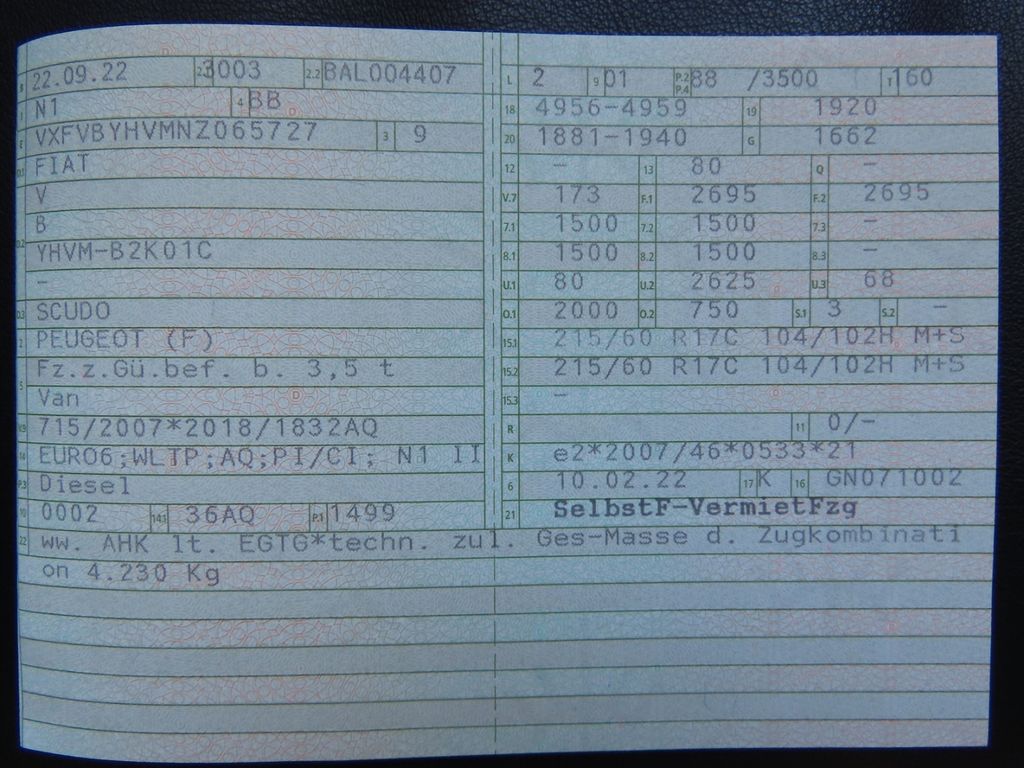 B 22.09.22 2.1 3003 2.2 BAL004407
J N1 4 BB
E VXFVBYHVMNZ065727 3 9
D.1 FIAT
V
B
D.2 YHVM-B2K01C
-
D.3 SCUDO
2 PEUGEOT (F)
Fz.z.Gü.bef. b. 3,5 t
5 Van
V.9 715/2007*2018/1832AQ
14 EURO6;WLTP;AQ;PI/CI; N1 II
P.3 Diesel
10 0002 14.1 36AQ P.1 1499
L 2 9 01 P.2 P.4 88 /3500 T 160
18 4956-4959 19 1920
20 1881-1940 G 1662
12 - 13 80 Q -
V.7 173 F.1 2695 F.2 2695
7.1 1500 7.2 1500 7.3 -
8.1 1500 8.2 1500 8.3 -
U.1 80 U.2 2625 U.3 68
O.1 2000 O.2 750 S.1 3 S.2 -
15.1 215/60 R17C 104/102H M+S
15.2 215/60 R17C 104/102H M+S
15.3 -
R 11 0/-
K e2*2007/46*0533*21
6 10.02.22 17 K 16 GN071002
21 SelbstF-VermietFzg
22 ww. AHK lt. EGTG*techn. zul. Ges-Masse d. Zugkombinati
on 4.230 Kg